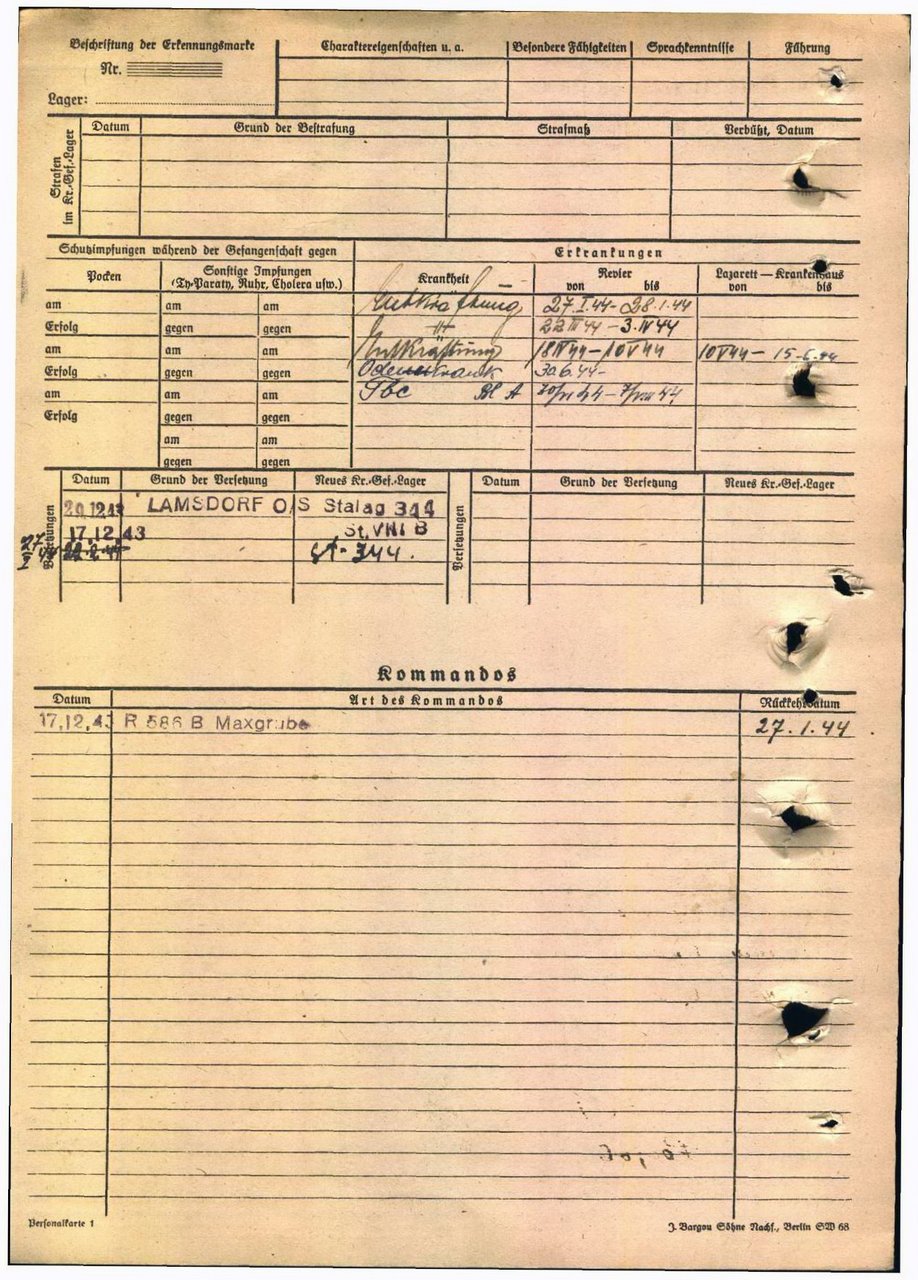 Beschriftung der Erkennungsmarke
Nr.
Lager:
Charaktereigenschaften u. a.
Besondere Fähigkeiten
Sprachkenntnisse
Führung
Strafen im Kr.-Gef.-Lager
Datum
Grund der Bestrafung
Strafmaß
Verbüßt, Datum
Schutzimpfungen während der Gefangenschaft gegen
Erkrankungen
Pocken
Sonstige Impfungen
(Ty-Paraty, Ruhr, Cholera usw.)
Krankheit
Revier
von bis
Lazarett — Krankenhaus
von bis
am am am Entkräftung 27.I.44 - 28.1.44
Erfolg gegen gegen -"- 22 III 44 - 3.IV 44
am am am Entkräftung 18 IV 44 - 10 V 44 10 V 44 - 15.6.44
Erfolg gegen gegen krank 30.6.44-
am am am Tbc
Erfolg gegen gegen
am am
gegen gegen
Versetzungen
Datum Grund der Versetzung Neues Kr.-Gef.-Lager
20.12.43 LAMSDORF O/S Stalag 344
17.12.43 St. VIII B
St. 344.
Versetzungen
Datum Grund der Versetzung Neues Kr.-Gef.-Lager
Kommandos
Datum Art des Kommandos Rückkehrdatum
17.12.43 R 586 B Maxgrube 27.1.44
Personalkarte 1
J. Bargou Söhne Nachf., Berlin SW 68